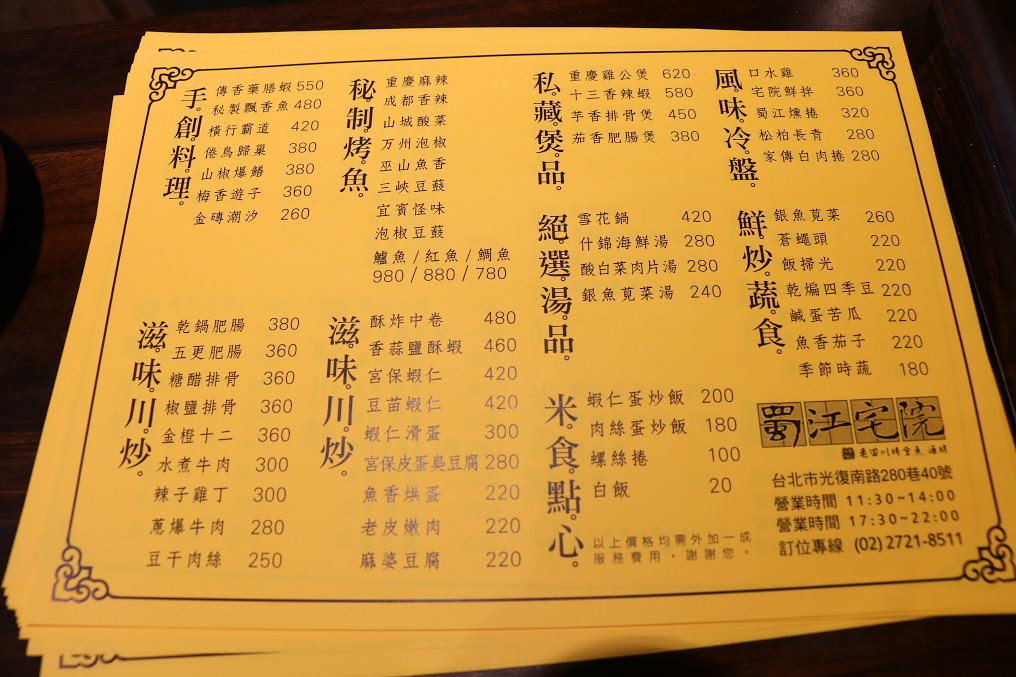 手創料理
傳香藥膳蝦 550
秘製飄香魚 480
橫行霸道 420
倦鳥歸巢 380
山椒爆鱔 380
梅香遊子 360
金磚潮汐 260
秘制烤魚
重慶麻辣
成都香辣
山城酸菜
万州泡椒
巫山魚香
三峽豆鼓
宜賓怪味
泡椒豆鼓
鱸魚/紅魚/鯛魚
980/880/780
私藏煲品
重慶雞公煲 620
十三香辣蝦 580
芋香排骨煲 450
茄香肥腸煲 380
風味冷盤
口水雞 360
宅院鮮拌 360
蜀江燻捲 320
松柏長青 280
家傳白肉捲 280
絕選湯品
雪花鍋 420
什錦海鮮湯 280
酸白菜肉片湯 280
銀魚莧菜湯 240
鮮炒蔬食
銀魚莧菜 260
蒼蠅頭 220
飯掃光 220
乾煸四季豆 220
鹹蛋苦瓜 220
魚香茄子 220
季節時蔬 180
滋味川炒
乾鍋肥腸 380
五更肥腸 360
糖醋排骨 360
椒鹽排骨 360
金橙十二 360
水煮牛肉 300
辣子雞丁 300
蔥爆牛肉 280
豆干肉絲 250
滋味川炒
酥炸中卷 480
香蒜鹽酥蝦 460
宮保蝦仁 420
豆苗蝦仁 420
蝦仁滑蛋 300
宮保皮蛋臭豆腐 280
魚香烘蛋 220
老皮嫩肉 220
麻婆豆腐 220
米食點心
蝦仁蛋炒飯 200
肉絲蛋炒飯 180
螺絲捲 100
白飯 20
以上價格均需外加一成
服務費用，謝謝您。
蜀江宅院
老四川烤全魚
台北市光復南路280巷40號
營業時間 11:30~14:00
營業時間 17:30~22:00
訂位專線 (02)2721-8511